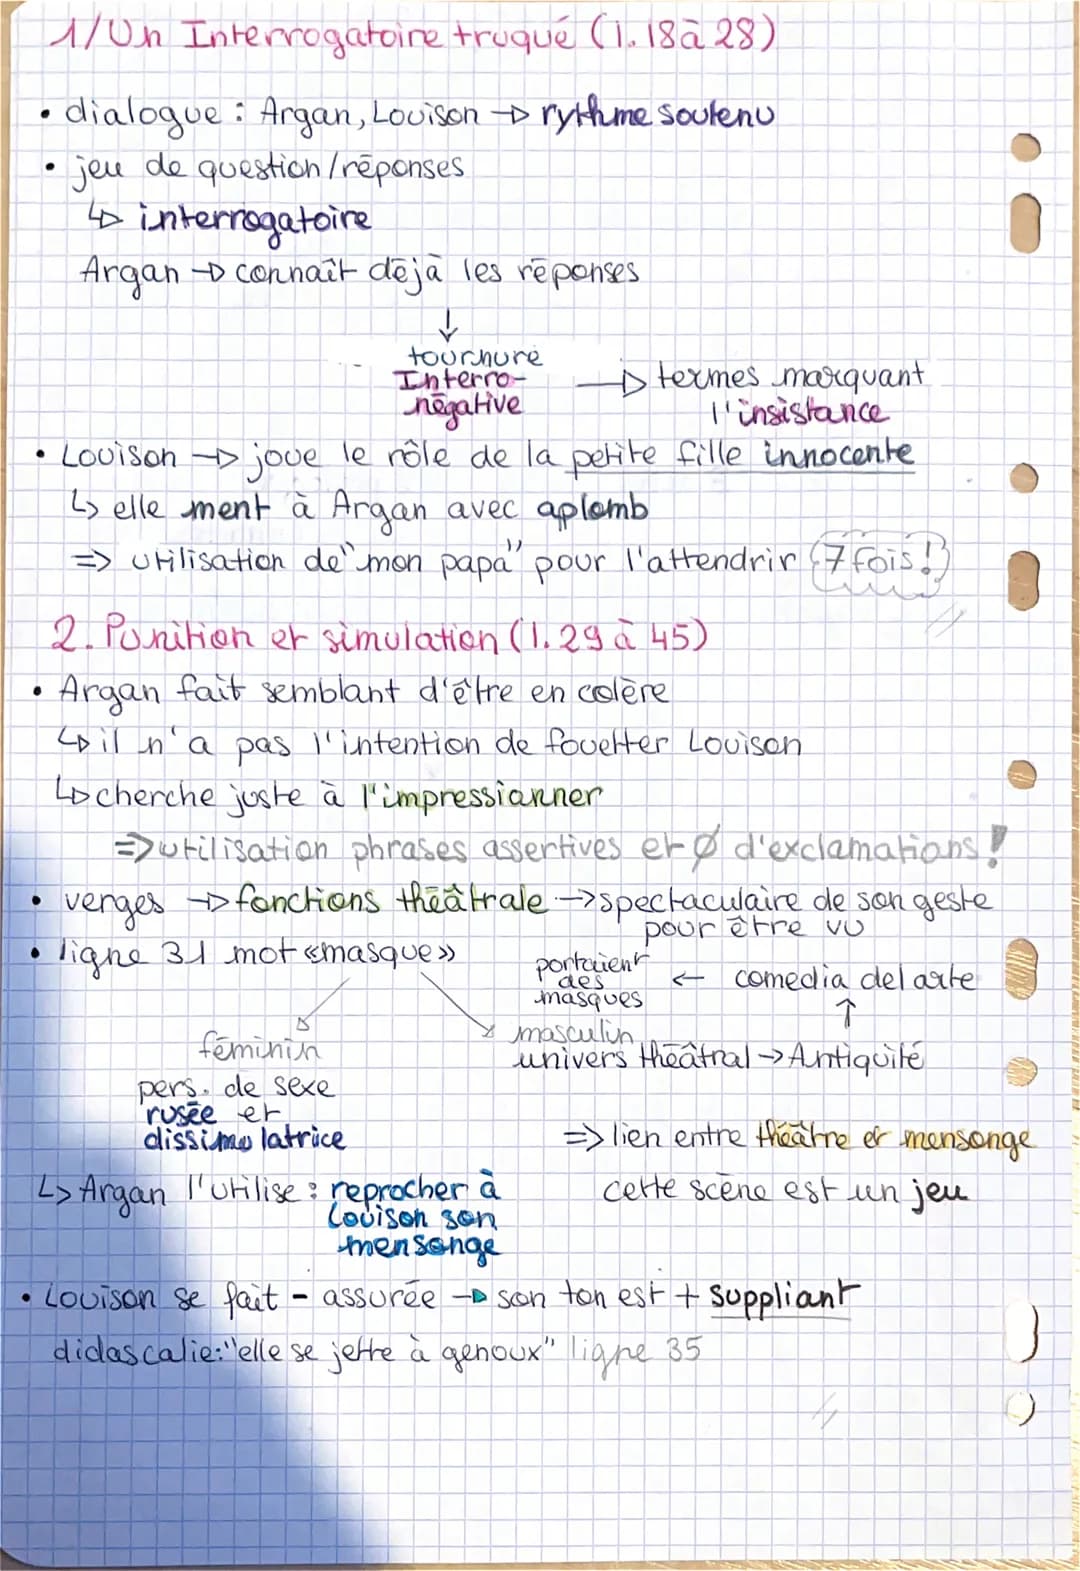 1/Un Interrogatoire truqué (l. 18 à 28)
• dialogue : Argan, Louison → rythme soutenu
• jeu de question/réponses
↳ interrogatoire
Argan → connaît déjà les réponses
↓
tournure
Interro-
négative → termes marquant
l'insistance
• Louison → joue le rôle de la petite fille innocente
↳ elle ment à Argan avec aplomb
=> utilisation de "mon papa" pour l'attendrir (7 fois!)
2. Punition et simulation (l. 29 à 45)
• Argan fait semblant d'être en colère
↳ il n'a pas l'intention de fouetter Louison
↳ cherche juste à l'impressianner
=> utilisation phrases assertives et Ø d'exclamations !
• verges → fonctions théâtrale → spectaculaire de son geste
pour être vu
• ligne 31 mot «masque»
portaient
des
masques ← comedia del arte
↑
féminin
pers. de sexe
rusée et
dissimulatrice
masculin
univers théâtral → Antiquité
=> lien entre théâtre et mensonge
cette scène est un jeu
↳ Argan l'utilise : reprocher à
Louison son
mensonge
• Louison se fait - assurée → son ton est + suppliant
didascalie:"elle se jette à genoux" ligne 35